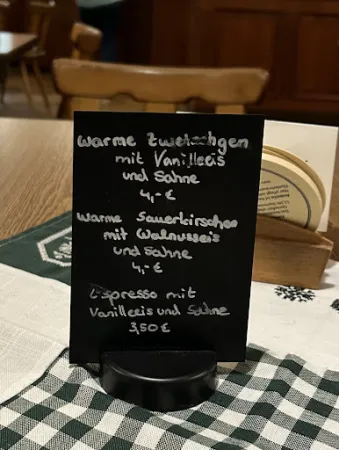 Warme Zwetschgen
mit Vanilleeis
und Sahne
4,- €
Warme Sauerkirschen
mit Walnusseis
und Sahne
4,- €
Espresso mit
Vanilleeis und Sahne
3,50 €